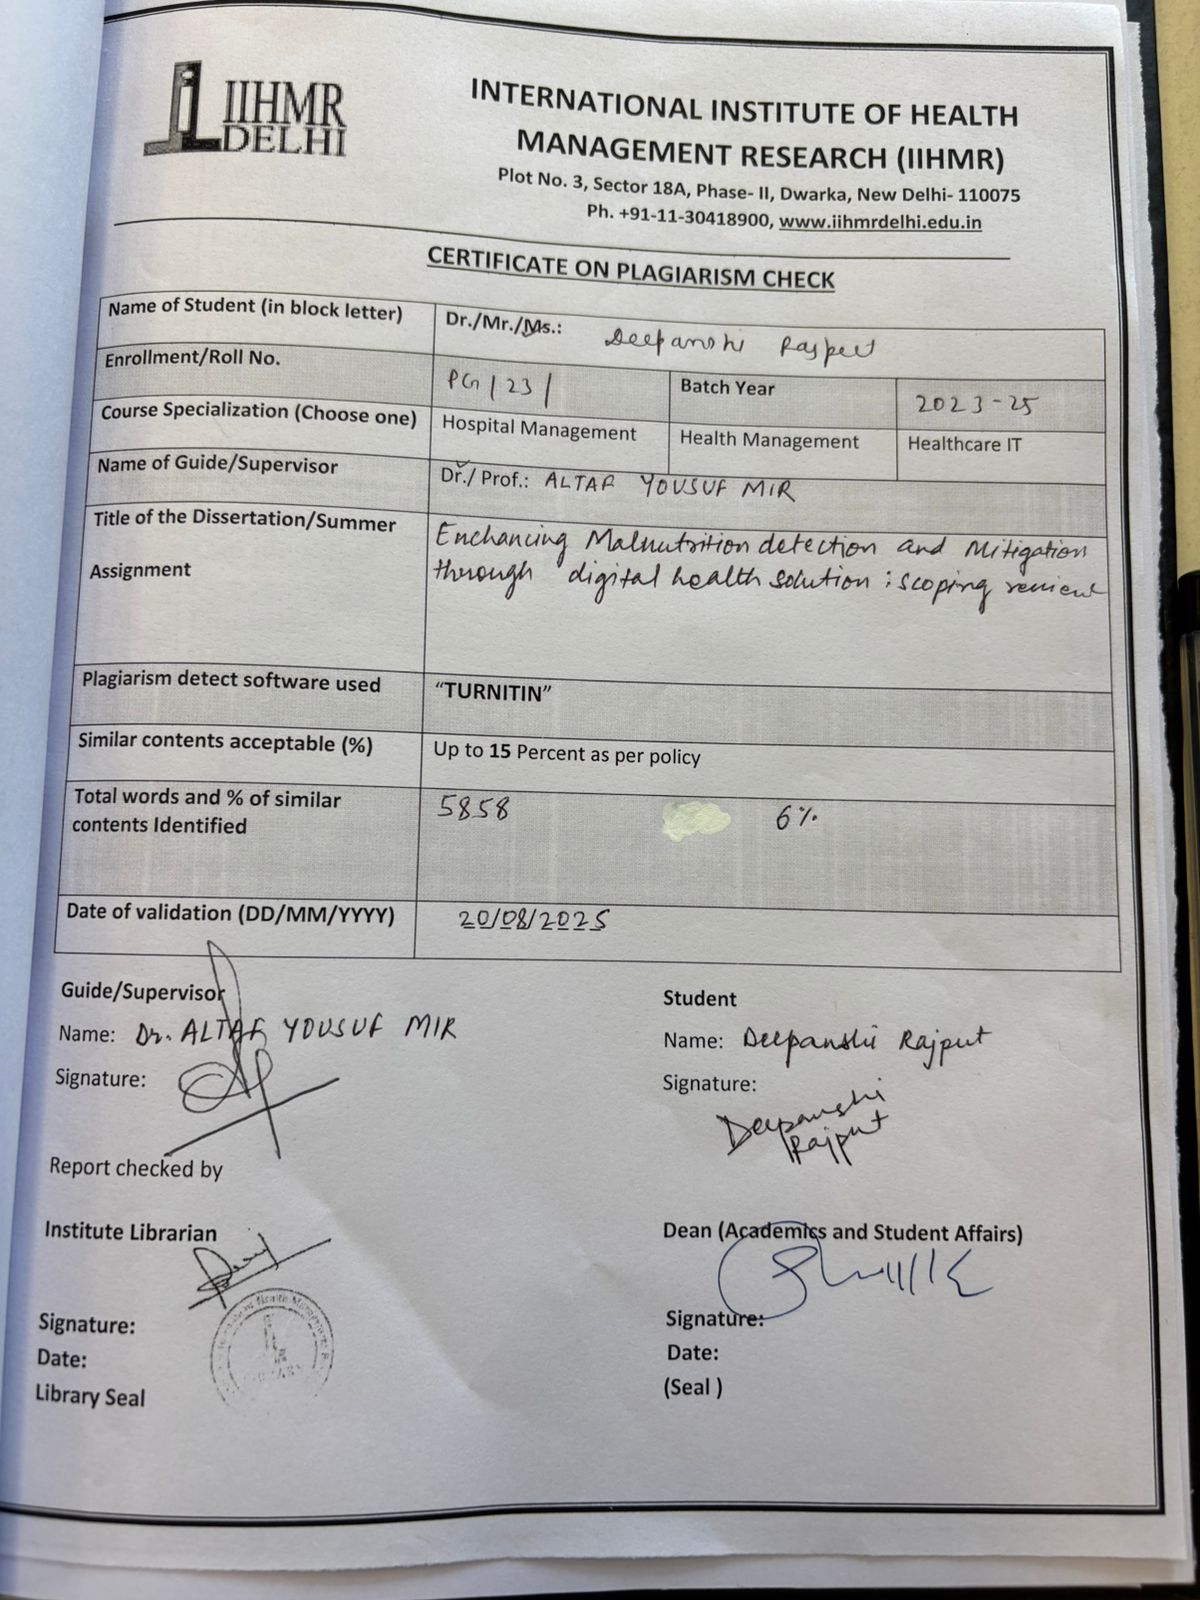 IIHMR
DELHI
INTERNATIONAL INSTITUTE OF HEALTH
MANAGEMENT RESEARCH (IIHMR)
Plot No. 3, Sector 18A, Phase- II, Dwarka, New Delhi- 110075
Ph. +91-11-30418900, www.iihmrdelhi.edu.in
CERTIFICATE ON PLAGIARISM CHECK
Name of Student (in block letter) Dr./Mr./Ms.: Deepanshi Rajput
Enrollment/Roll No. PG/23/ Batch Year 2023-25
Course Specialization (Choose one) Hospital Management Health Management Healthcare IT
Name of Guide/Supervisor Dr./ Prof.: ALTAF YOUSUF MIR
Title of the Dissertation/Summer
Assignment
Enchancing Malnutrition detection and Mitigation
through digital health solution : scoping review
Plagiarism detect software used "TURNITIN"
Similar contents acceptable (%) Up to 15 Percent as per policy
Total words and % of similar
contents Identified
5858 6%
Date of validation (DD/MM/YYYY) 20/08/2025
Guide/Supervisor
Name: Dr. ALTAF YOUSUF MIR
Signature:
Student
Name: Deepanshi Rajput
Signature:
Deepanshi
Rajput
Report checked by
Institute Librarian
Signature:
Date:
Library Seal
Dean (Academics and Student Affairs)
Signature:
Date:
(Seal )